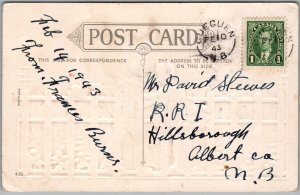 POST CARD
THIS SIDE FOR CORRESPONDENCE
THE ADDRESS TO BE WRITTEN
ON THIS SIDE
Feb 14 1943
From Frances Burns.
Mr David Steeves
R.R.1
Hillsborough
Albert co
N.B
FE 10
43
N.B.
1 1